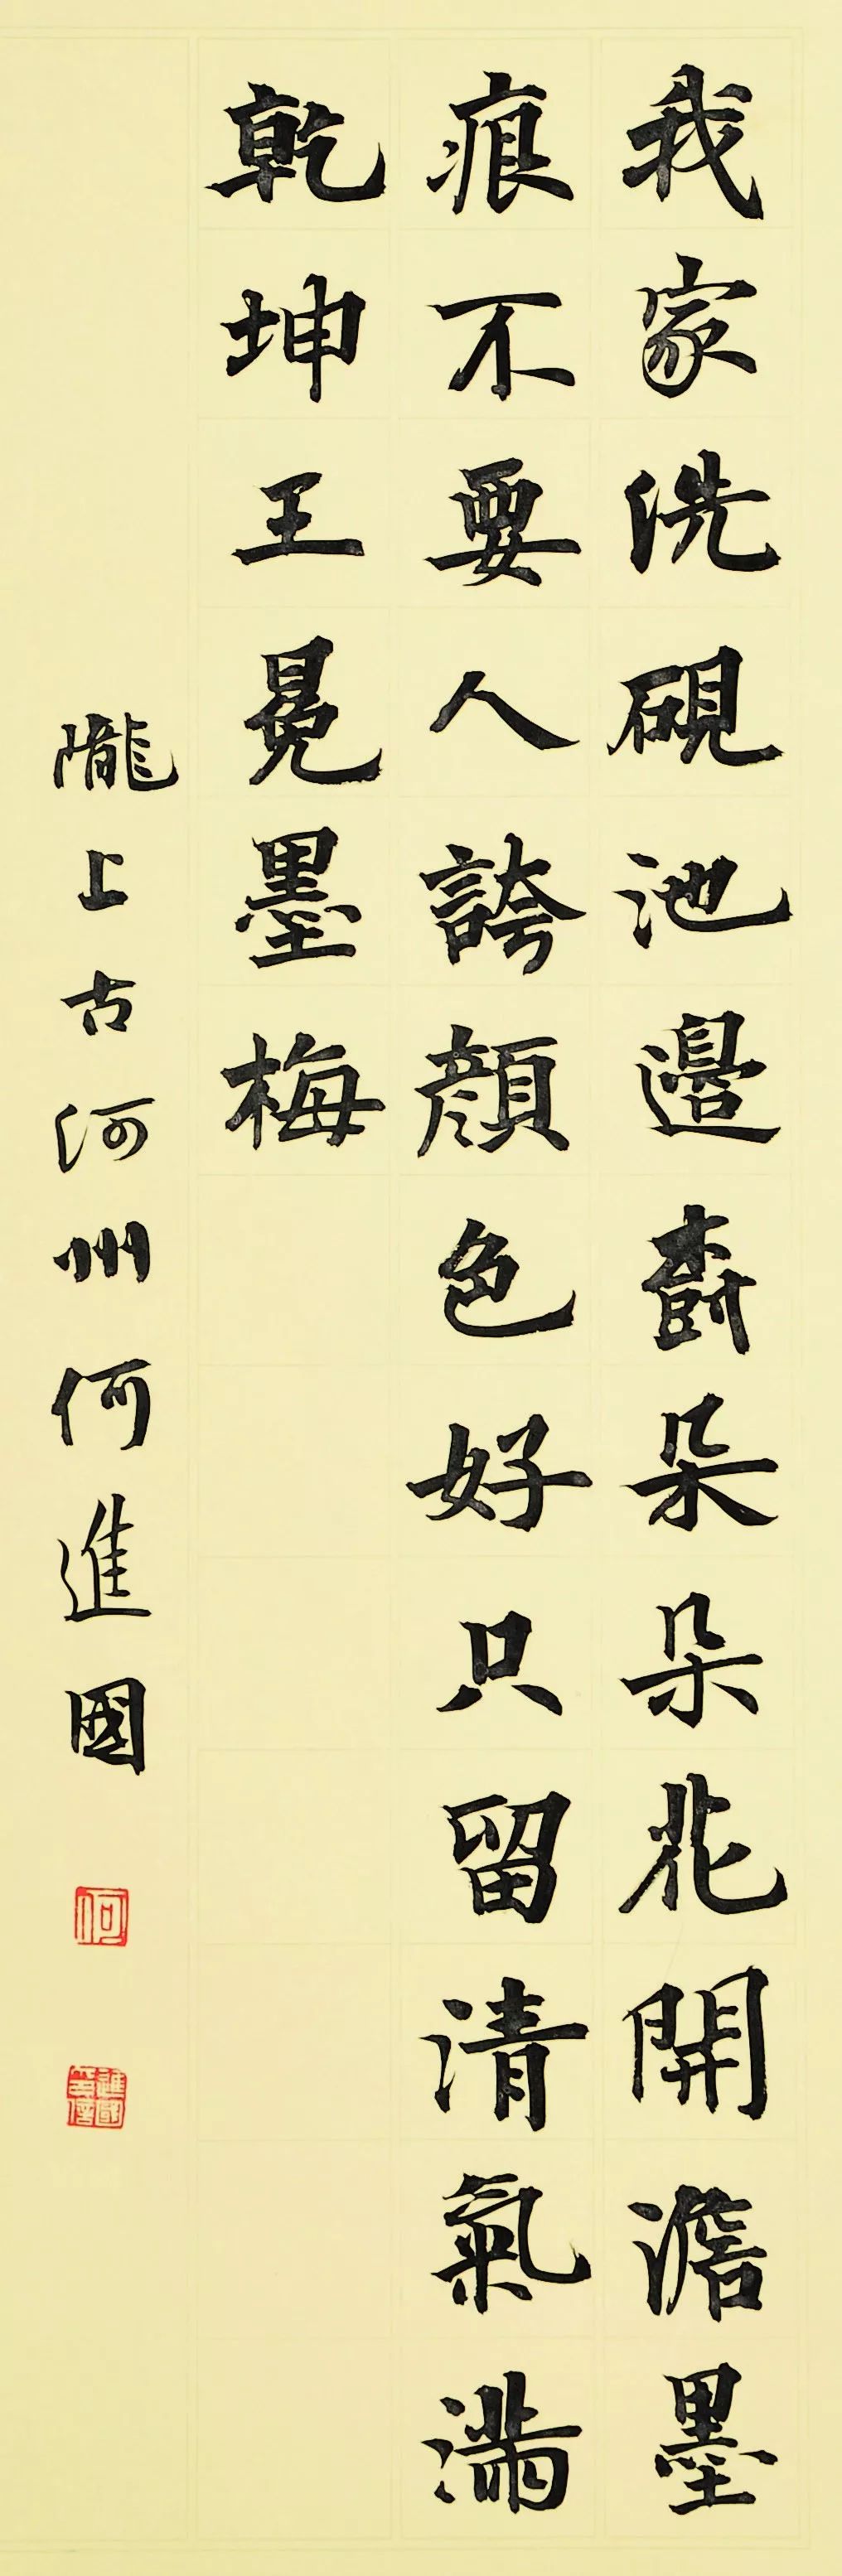 我家洗硯池邊樹朵朵花開澹墨
痕不要人誇顔色好只留清氣滿
乾坤王冕墨梅
隴上古河州何進國
何
進國印信